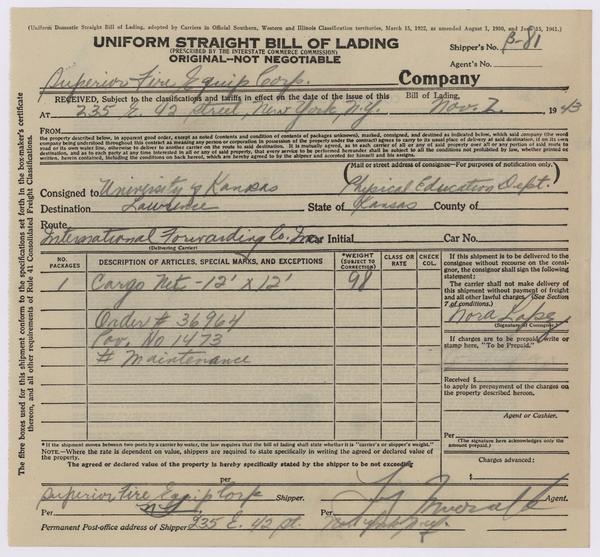 (Uniform Domestic Straight Bill of Lading, adopted by Carriers in Official Southern, Western and Illinois Classification territories, March 15, 1922, as amended August 1, 1930, and June 15, 1941.)
UNIFORM STRAIGHT BILL OF LADING
(PRESCRIBED BY THE INTERSTATE COMMERCE COMMISSION)
ORIGINAL—NOT NEGOTIABLE
Shipper's No. B-81
Agent's No.
Superior Fire Equip Corp. Company
RECEIVED, Subject to the classifications and tariffs in effect on the date of the issue of this Bill of Lading,
At 235 E. 42 Street, New York, N.Y. Nov. 2 1943
FROM
the property described below, in apparent good order, except as noted (contents and condition of contents of packages unknown), marked, consigned, and destined as indicated below, which said company (the word company being understood throughout this contract as meaning any person or corporation in possession of the property under the contract) agrees to carry to its usual place of delivery at said destination, if on its own road or its own water line, otherwise to deliver to another carrier on the route to said destination. It is mutually agreed, as to each carrier of all or any of said property over all or any portion of said route to destination, and as to each party at any time interested in all or any of said property, that every service to be performed hereunder shall be subject to all the conditions not prohibited by law, whether printed or written, herein contained, including the conditions on back hereof, which are hereby agreed to by the shipper and accepted for himself and his assigns.
(Mail or street address of consignee—For purposes of notification only.)
Consigned to University of Kansas Physical Education Dept.
Destination Lawrence State of Kansas County of
Route
International Forwarding Co. Inc. Car Initial Car No.
(Delivering Carrier)
NO. PACKAGES DESCRIPTION OF ARTICLES, SPECIAL MARKS, AND EXCEPTIONS *WEIGHT (SUBJECT TO CORRECTION) CLASS OR RATE CHECK COL.
1 Cargo Net - 12' x 12' 98
Order # 36964
Gov. No 1473
# Maintenance
If this shipment is to be delivered to the consignee without recourse on the consignor, the consignor shall sign the following statement:
The carrier shall not make delivery of this shipment without payment of freight and all other lawful charges. (See Section 7 of conditions.)
Nora Lopez
(Signature of Consignor)
If charges are to be prepaid, write or stamp here, "To be Prepaid."
Received $
to apply in prepayment of the charges on the property described hereon.
Agent or Cashier.
Per
(The signature here acknowledges only the amount prepaid.)
Charges advanced:
$
*If the shipment moves between two ports by a carrier by water, the law requires that the bill of lading shall state whether it is "carrier's or shipper's weight."
NOTE.—Where the rate is dependent on value, shippers are required to state specifically in writing the agreed or declared value of the property.
The agreed or declared value of the property is hereby specifically stated by the shipper to be not exceeding
per
Superior Fire Equip Corp Shipper. Agent.
Per Per
Permanent Post-office address of Shipper 235 E. 42 St. New York, N.Y.
The fibre boxes used for this shipment conform to the specifications set forth in the box-maker's certificate thereon, and all other requirements of Rule 41 Consolidated Freight Classifications.